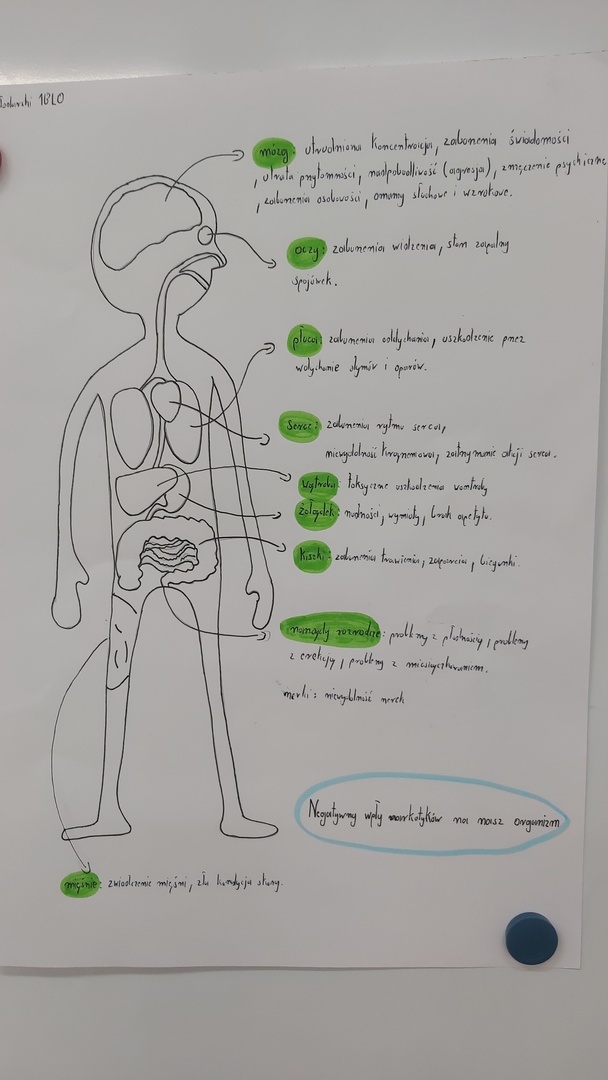 1BLO
mózg: utrudniona koncentracja, zaburzenia świadomości
, utrata przytomności, nadpobudliwość (agresja), zmęczenie psychiczne
, zaburzenia osobowości, omamy słuchowe i wzrokowe.
oczy: zaburzenia widzenia, stan zapalny
spojówek.
płuca: zaburzenia oddychania, uszkodzenie przez
wdychanie dymów i oparów.
serce: zaburzenia rytmu serca,
niewydolność krążeniowa, zatrzymanie akcji serca.
wątroba: toksyczne uszkodzenia wątroby
żołądek: nudności, wymioty, brak apetytu.
kiszki: zaburzenia trawienia, zaparcia, biegunki.
narządy rozrodcze: problemy z płodnością, problemy
z erekcją, problemy z miesiączkowaniem.
nerki: niewydolność nerek
Negatywny wpły narkotyków na nasz organizm
mięśnie: zwiotczenie mięśni, zła kondycja